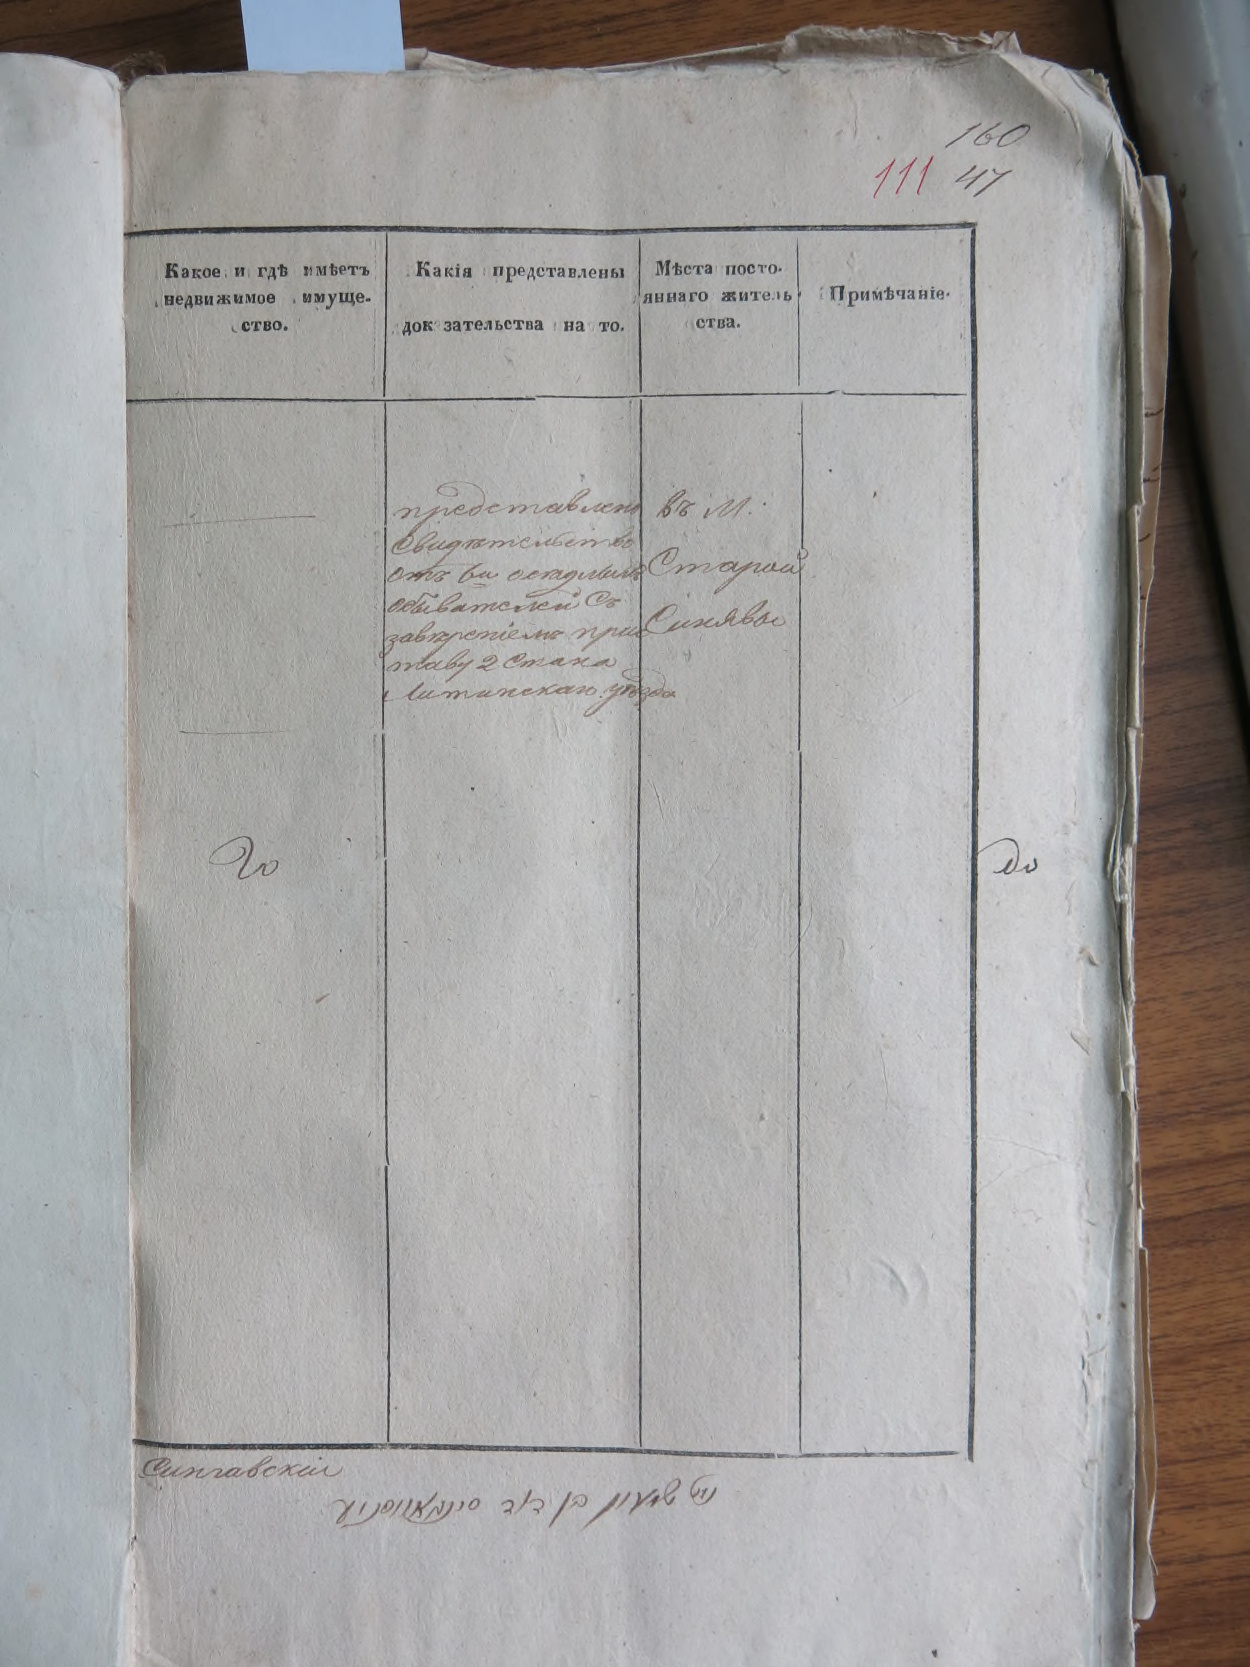 160
111 47
Какое и гдѣ имѣетъ
недвижимое имуще-
ство.
Какія представлены
док зательства на то.
Мѣста посто-
яннаго житель
ства.
Примѣчаніе.
представлено
Свидѣтельство
отъ 6и осѣдлыхъ
обывателей съ
завѣреніемъ прис
таву 2 Стана
Литинскаго уѣзда
въ М.
Старой
Синявы
до
Синявскій
שמעון בן דוד